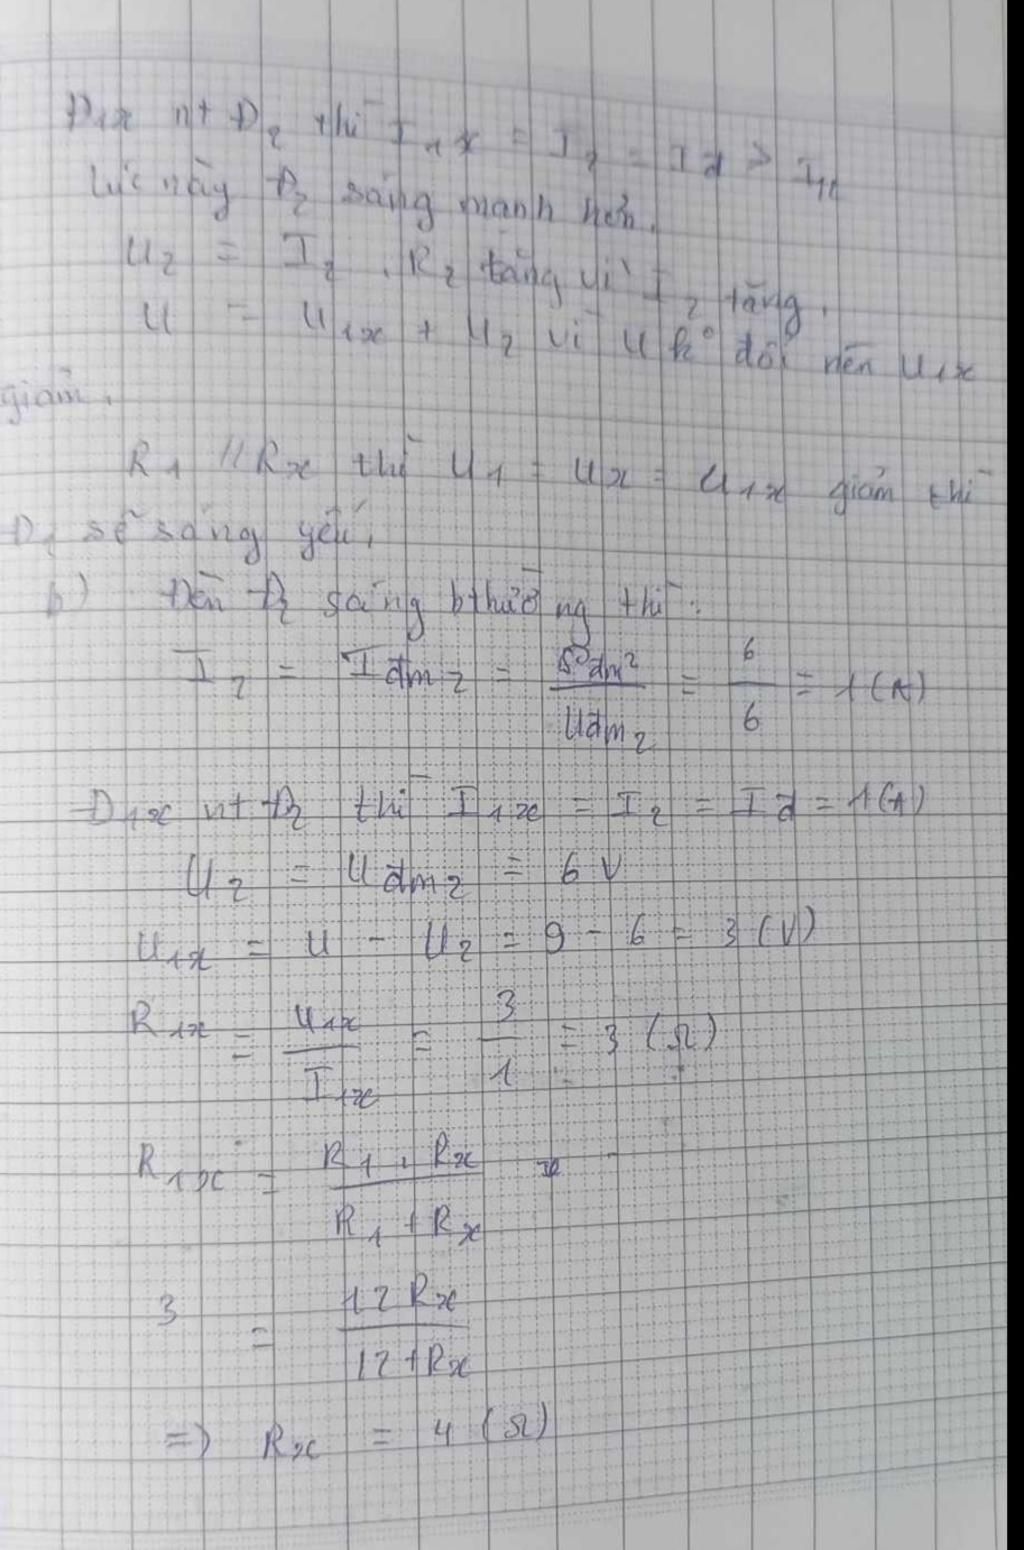 Đ1x nt Đ2 thì I1x = I2 = Id >
Lúc này Đ2 sáng mạnh hơn.
U2 = I2 . R2 tăng vì I2 tăng.
U = U1x + U2 vì U k° đổi nên U1x
giảm.
R1 // Rx thì U1 = Ux = U1x giảm thì
Đ1 sẽ sáng yếu.
b) Đèn Đ2 sáng bthường thì:
I2 = Iđm2 = Pđm2 / Uđm2 = 6 / 6 = 1 (A)
Đ1x nt Đ2 thì I1x = I2 = Id = 1(A)
U2 = Uđm2 = 6 V
U1x = U - U2 = 9 - 6 = 3 (V)
R1x = U1x / I1x = 3 / 1 = 3 (Ω)
R1x = R1 . Rx / R1 + Rx
3 = 12 Rx / 12 + Rx
=> Rx = 4 (Ω)